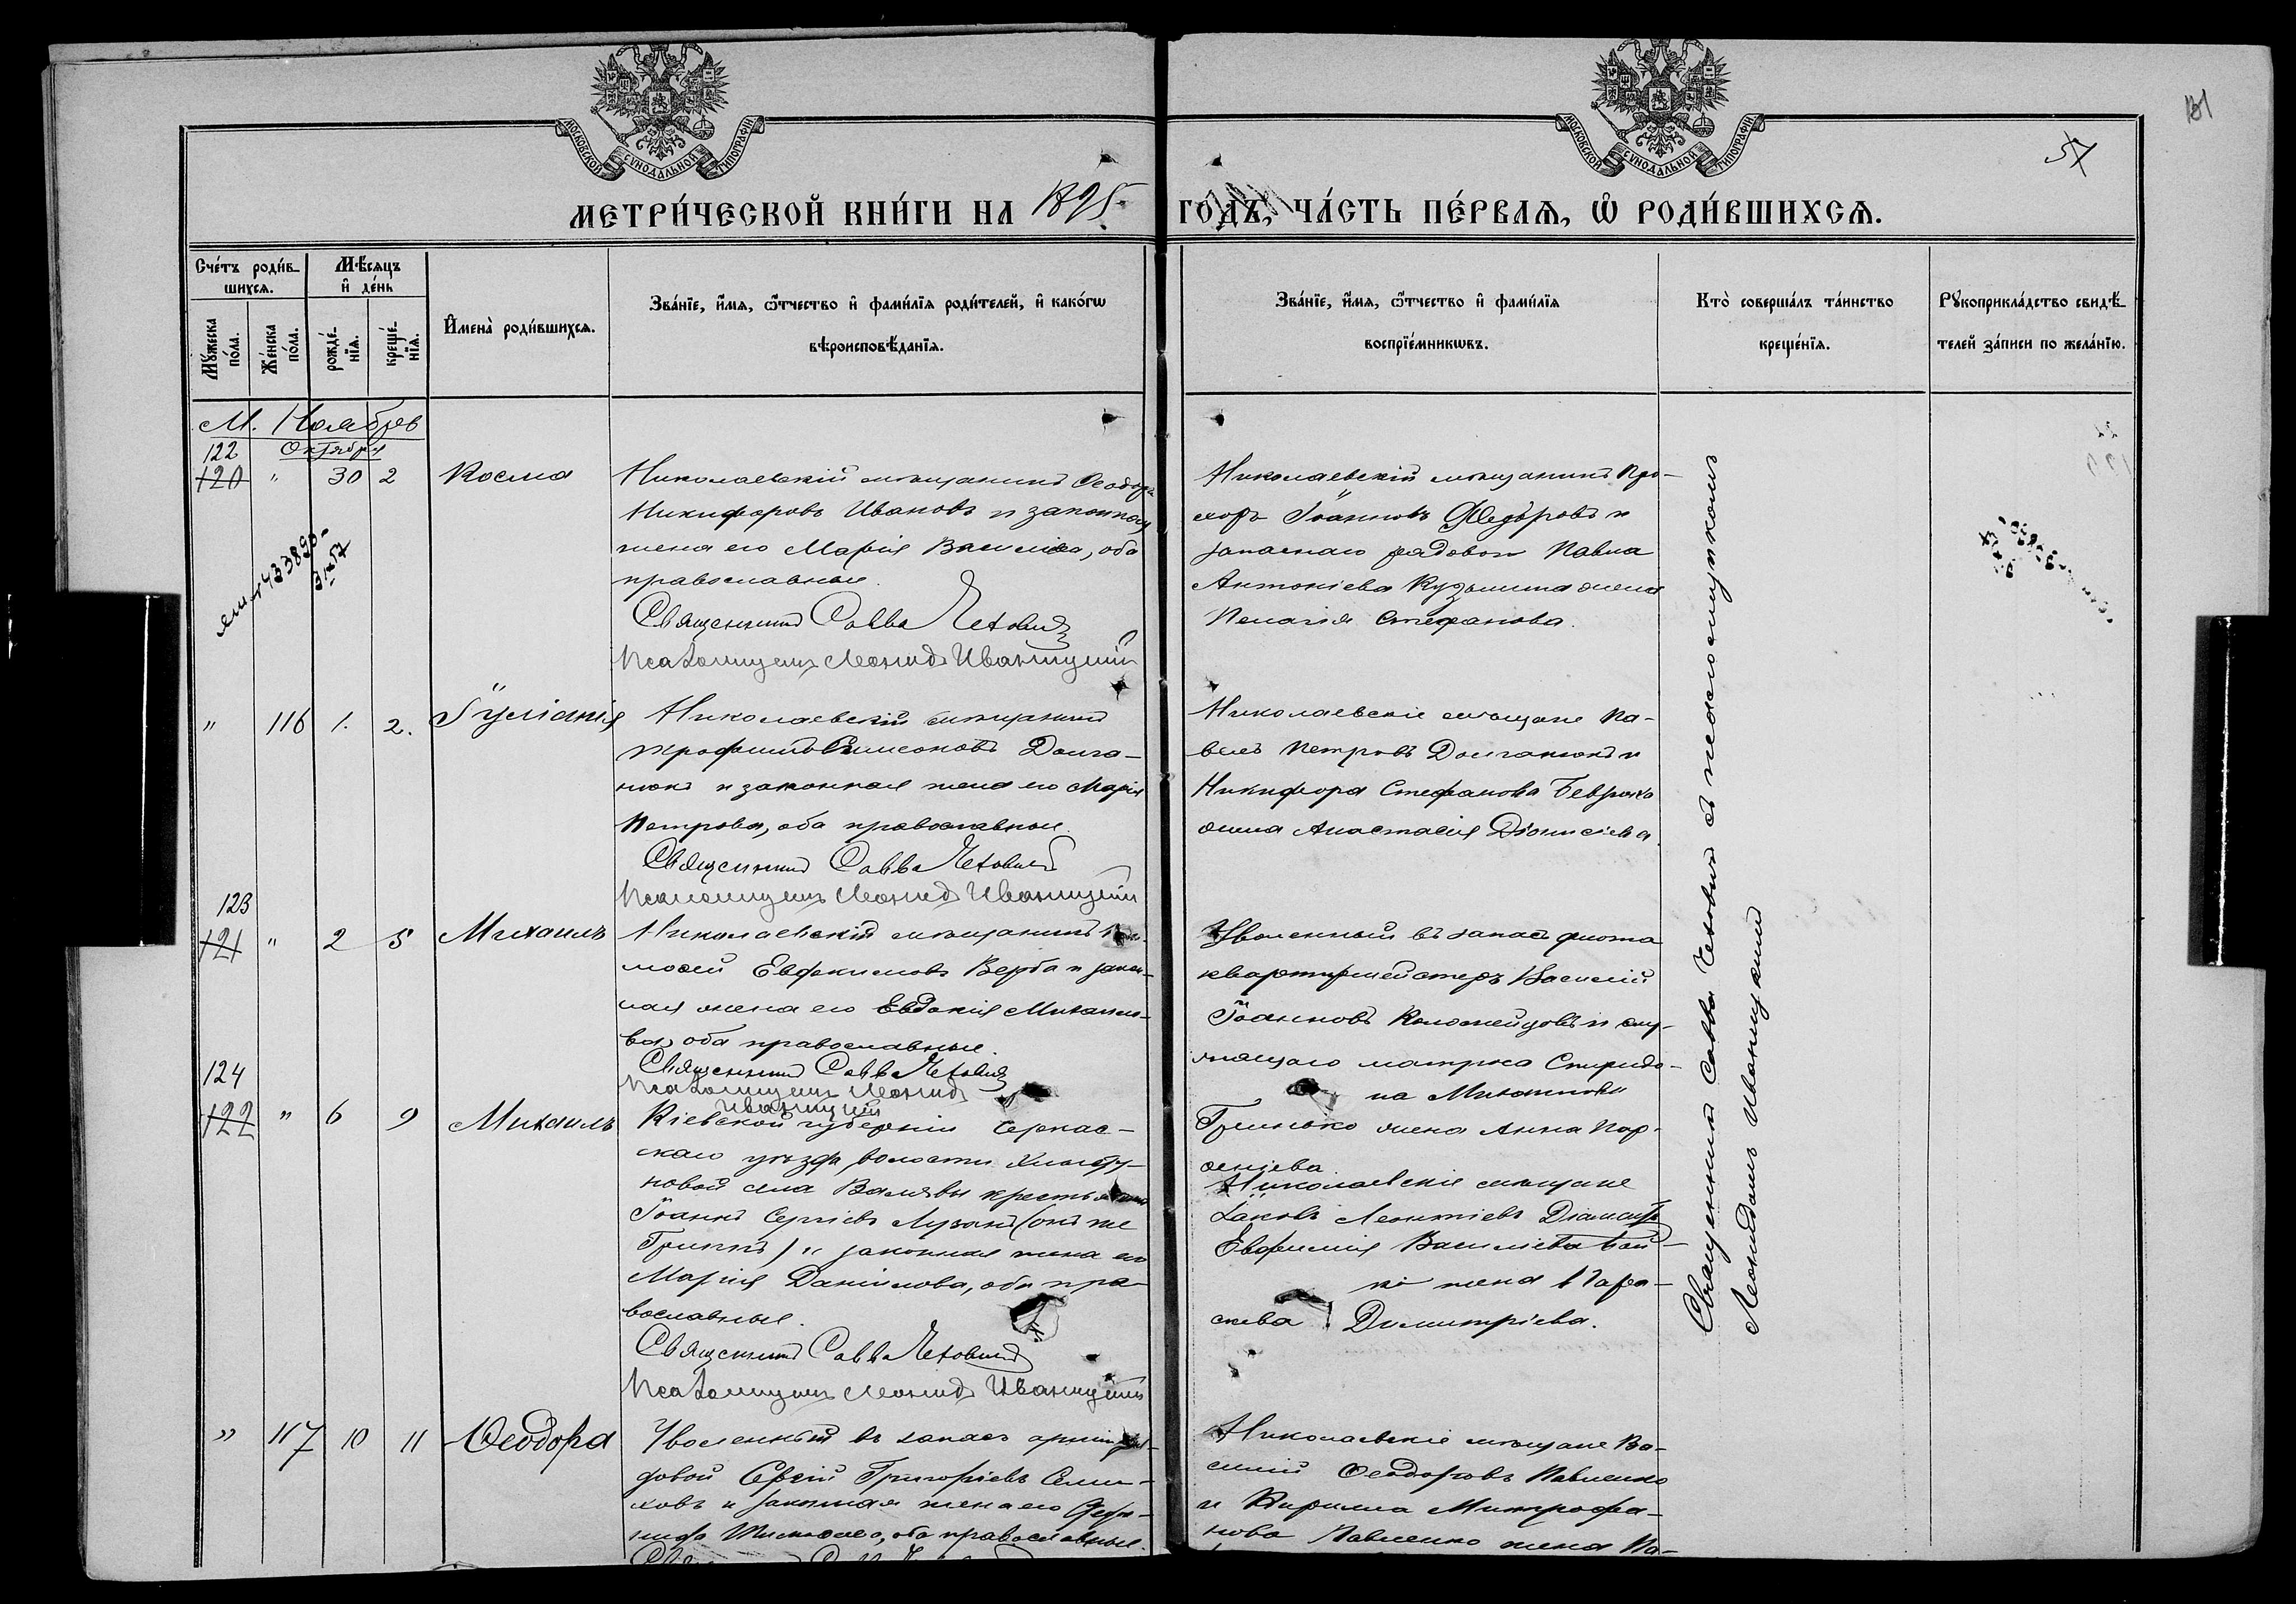 МОСКОВСКОЙ СУНОДАЛЬНОЙ ТИПОГРАФІИ
МОСКОВСКОЙ СУНОДАЛЬНОЙ ТИПОГРАФІИ
57
МЕТРИ́ЧЕСКОЙ КНИ́ГИ НА 1895
ГОДЪ, ЧА́СТЬ ПЕ́РВАѦ, Ѽ РОДИ́ВШИХСѦ.
Сче́тъ роди́в-
шихсѧ.
Мѣ́сѧцъ
и҆ де́нь
Мꙋ́жеска по́ла.
Же́нска по́ла.
рожде́-
нїѧ.
креще́-
нїѧ.
И҆мена̀ роди́вшихсѧ.
Зва́нїе, и҆́мѧ, ѻ҆́тчество и҆ фами́лїѧ роди́телей, и҆ како́гѡ
вѣроисповѣ́данїѧ.
Зва́нїе, и҆́мѧ, ѻ҆́тчество и҆ фами́лїѧ
воспрїе́мникѡвъ.
Кто̀ соверша́лъ та́инство
креще́нїѧ.
Рꙋкоприкла́дство свидѣ́-
телей за́писи по жела́нїю.
М. Ноябрь
122 Октября
120 " 30 2 Косма
Николаевскій мѣщанинъ Ѳеодоръ
Никифоровъ Ивановъ и законная
жена его Марія Василіева, оба
православные.
Священникъ Савва Чеховичъ
Псаломщикъ Леонидъ Иваницкій
Николаевскій мѣщанинъ Про-
хоръ Іоанновъ Ѳедоровъ и
запаснаго рядового Павла
Антоніева Кузьмина жена
Пелагія Стефанова.
" 116 1. 2. Іуліанія
Николаевскій мѣщанинъ
Трофимъ Симеоновъ Долга-
нюкъ и законная жена его Марія
Петрова, оба православные.
Священникъ Савва Чеховичъ
Псаломщикъ Леонидъ Иваницкій
Николаевскіе мѣщане Па-
велъ Петровъ Долганюкъ и
Никифора Стефанова
жена Анастасія Діонисіева.
123
121 " 2 5 Михаилъ
Николаевскій мѣщанинъ
Евфимовъ Верба и закон-
ная жена его Евдокія Михаило-
ва, оба православные.
Священникъ Савва Чеховичъ
Псаломщикъ Леонидъ
Иваницкій
Уволенный въ запасъ флота
квартирмейстеръ Василій
Іоанновъ Коломейцовъ и слу-
жащаго матроса Спиридо-
на Михайлова
Гринько жена Анна Пар-
ѳеніева.
124
122 " 6 9 Михаилъ
Кіевской губерніи Черкас-
скаго уѣзда, волости
новой села Валявы крестьянинъ
Іоаннъ Сергіевъ Лузанъ (онъ же
) и законная жена его
Марія Даніилова, оба пра-
вославные.
Священникъ Савва Чеховичъ
Псаломщикъ Леонидъ Иваницкій
Николаевскіе мѣщане
Іаковъ Леонтіевъ
Евфимія Василіева
жена Пара-
скева Димитріева.
" 117 10 11 Ѳеодора
Уволенный въ запасъ арміи ря-
довой Сергій Григоріевъ Семи-
ховъ и законная жена его
оба православные.
Николаевскіе мѣщане Ва-
силій Ѳеодоровъ Павленко
и Кирилла Митрофа-
нова Павленко жена Па-
Священникъ Савва Чеховичъ съ псаломщикомъ
Леонидомъ Иваницкимъ